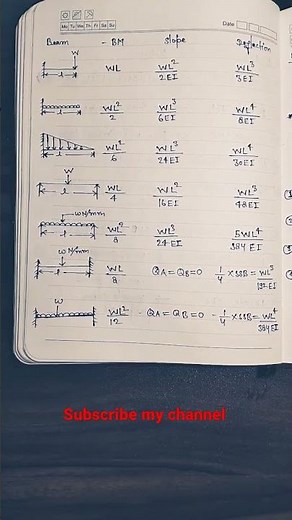 Date
Mo Tu We Th Fr Sa Su
Beam - BM Slope Deflection
W
l WL WL²/2EI WL³/3EI
l WL²/2 WL³/6EI WL⁴/8EI
l WL²/6 WL³/24EI WL⁴/30EI
W
l WL/4 WL²/16EI WL³/48EI
w N/mm
l WL²/8 WL³/24EI 5WL⁴/384EI
w N/mm
l WL/8 QA = QB = 0 1/4 × SSB = WL³/192EI
W
l WL²/12 - QA = QB = 0 - 1/4 × SSB = WL⁴/384EI
Subscribe my channel